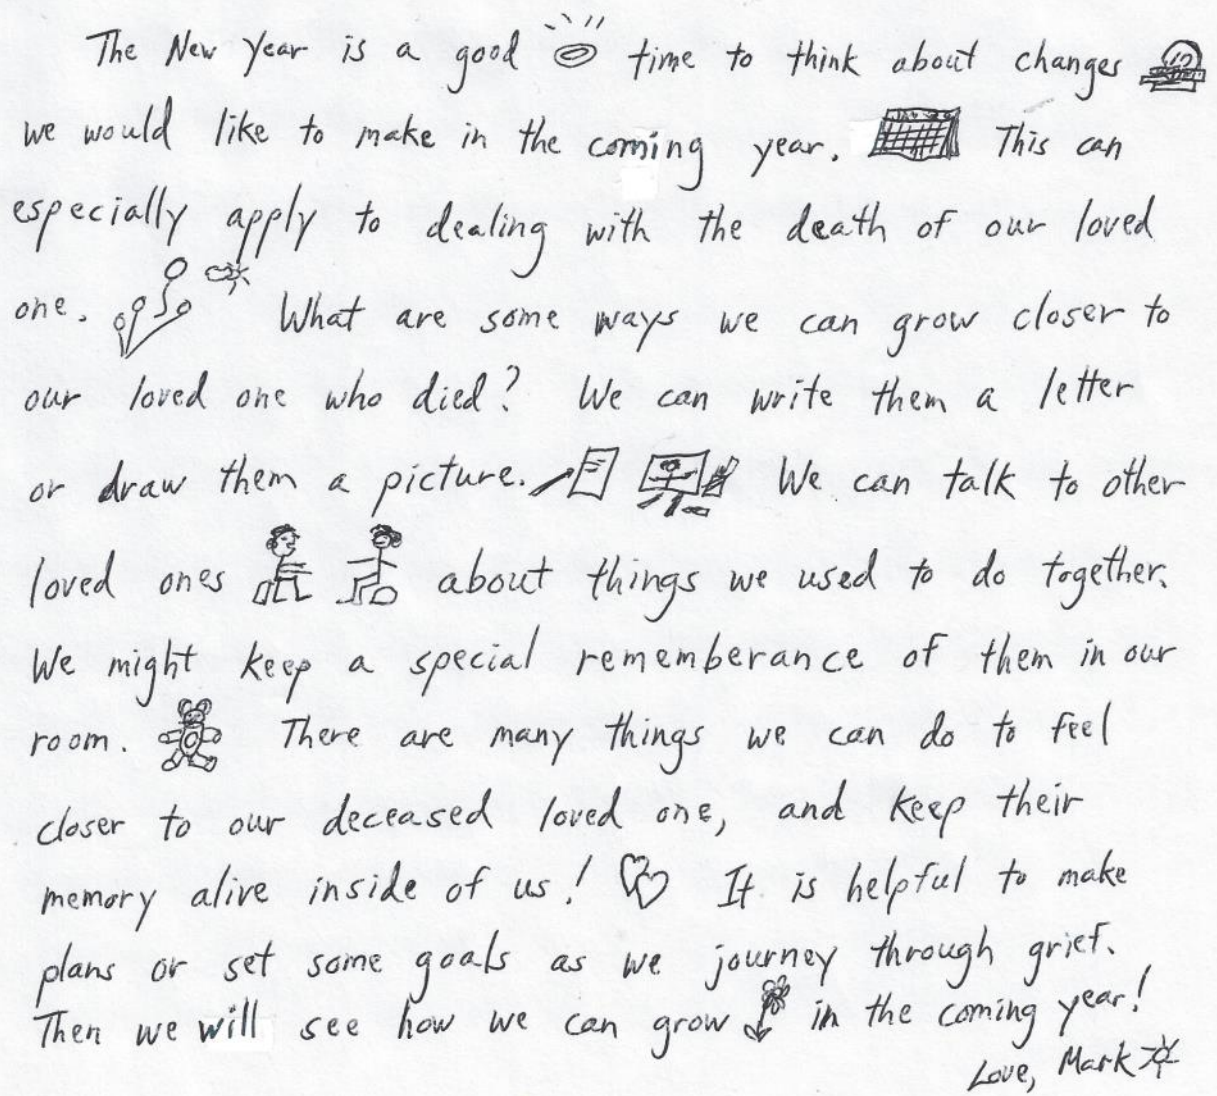 The New Year is a good time to think about changes
we would like to make in the coming year. This can
especially apply to dealing with the death of our loved
one. What are some ways we can grow closer to
our loved one who died? We can write them a letter
or draw them a picture. We can talk to other
loved ones about things we used to do together.
We might keep a special rememberance of them in our
room. There are many things we can do to feel
closer to our deceased loved one, and keep their
memory alive inside of us! It is helpful to make
plans or set some goals as we journey through grief.
Then we will see how we can grow in the coming year!
Love, Mark